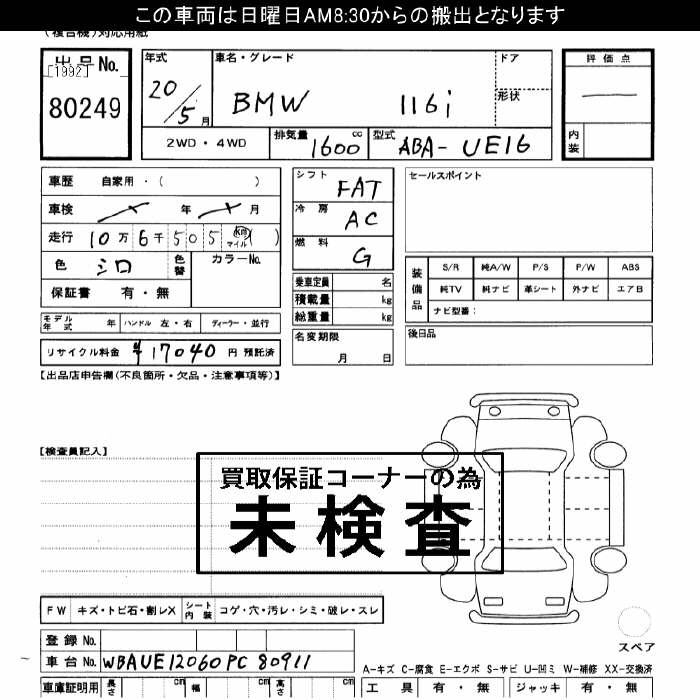 この車両は日曜日AM8:30からの搬出となります
(複合機)対応用紙
出品No.
[1992]
80249
年式
20/5月
車名・グレード
BMW 116i
ドア
形状
評価点
内装
2WD・4WD
排気量
1600cc
型式
ABA-UE16
車歴 自家用・( )
車検 年 月
走行 10万6千505 km マイル ( )
色 シロ 色替 カラーNo.
保証書 有・無
シフト FAT
冷房 AC
燃料 G
乗車定員 名
積載量 kg
総重量 kg
セールスポイント
装備品
S/R 純A/W P/S P/W ABS
純TV 純ナビ 革シート 外ナビ エアB
ナビ型番:
モデル年式 年 ハンドル 左・右 ディーラー・並行
名変期限 月 日
後日品
リサイクル料金 ¥17040 円 預託済
【出品店申告欄(不良箇所・欠品・注意事項等)】
【検査員記入】
買取保証コーナーの為
未検査
FW キズ・トビ石・割レX シート内装 コゲ・穴・汚レ・シミ・破レ・スレ
スペア
登録No.
車台No. WBAUE12060PC80911
A-キズ C-腐食 E-エクボ S-サビ U-凹ミ W-補修 XX-交換済
車庫証明用 長さ cm 幅 cm 高さ cm
工具 有・無 ジャッキ 有・無